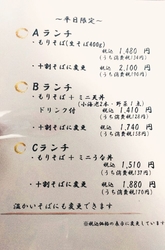 ～平日限定～
Aランチ
・もりそば(変そば400g)
税込 1,480円
(うち消費税134円)
・十割そばに変更 税込 2,100円
(うち消費税190円)
Bランチ
・もりそば + ミニ天丼
(小海老2本・野菜1点)
ドリンク付 税込 1,410円
(うち消費税128円)
・十割そばに変更 税込 1,740円
(うち消費税158円)
Cランチ
・もりそば + ミニうな丼
税込 1,510円
(うち消費税137円)
・十割そばに変更 税込 1,880円
(うち消費税170円)
温かいそばにも変更できます
※税込価格の表示に変更しています